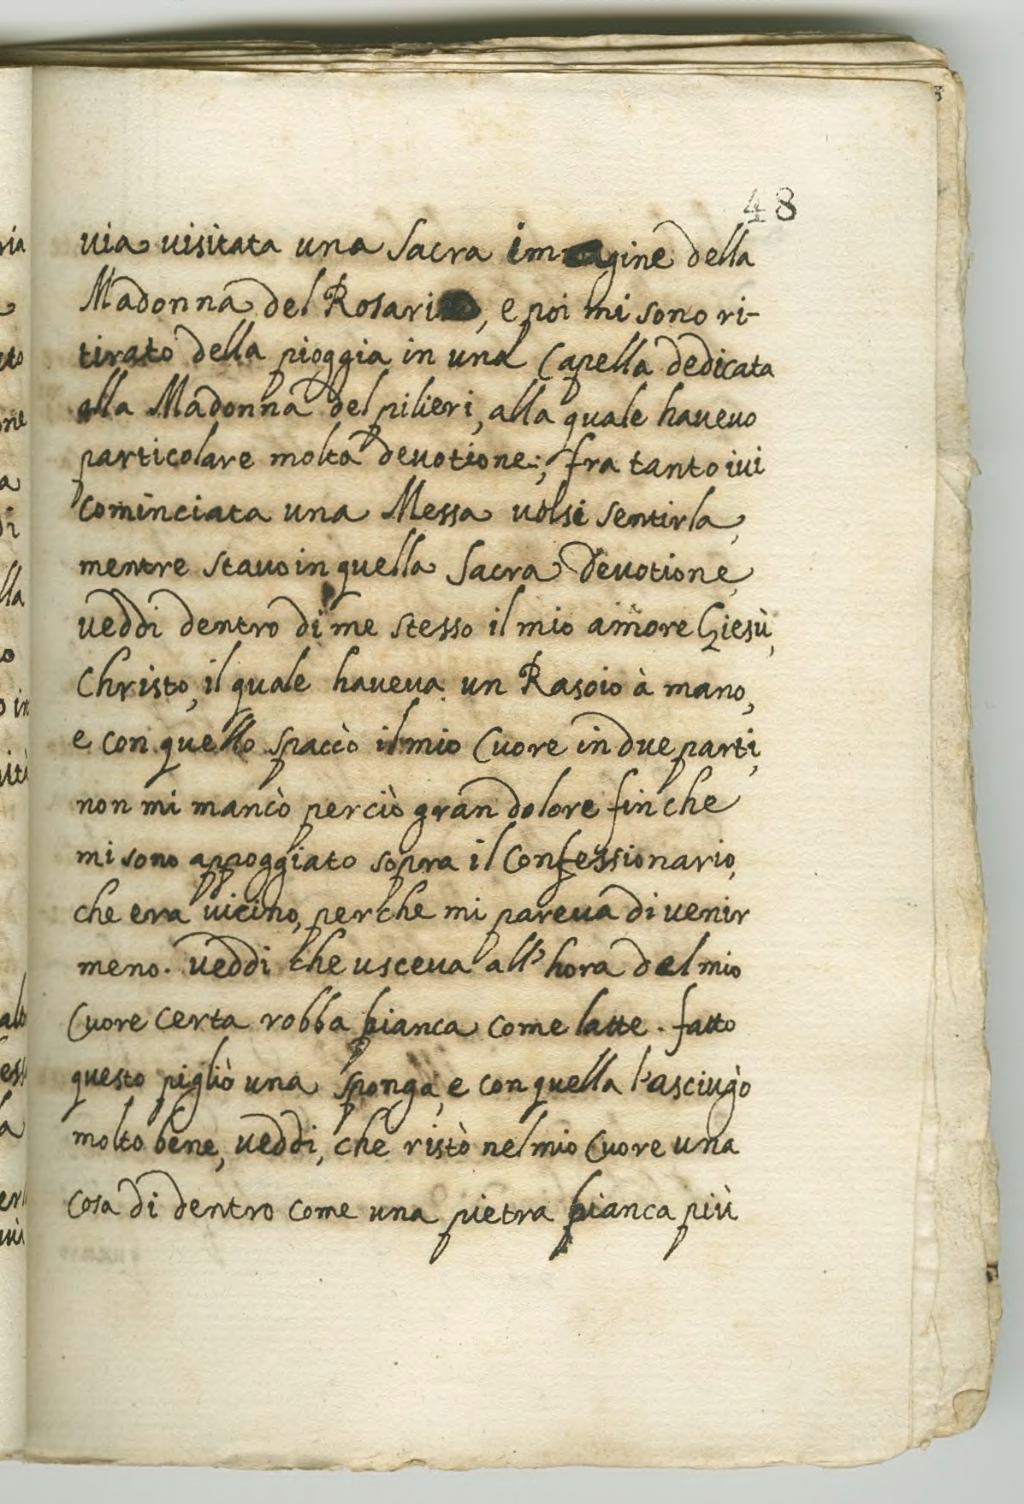 48
uia uisitata una Sacra immagine della
Madonna del Rosario, e poi mi sono ri-
tirato della pioggia in una Capella dedicata
alla Madonna del pilieri, alla quale haueuo
particolare molta deuotione; fra tanto iui
cominciata una Messa uolsi sentirla,
mentre stauo in quella Sacra Deuotione,
ueddi dentro di me stesso il mio amore Giesù
Christo, il quale haueua un Rasoio à mano,
e con quello spaccò il mio Cuore in due parti,
non mi mancò perciò gran dolore finche
mi sono appoggiato sopra il Confessionario,
che era uicino, perche mi pareua di uenir
meno. ueddi che usceua all'hora del mio
Cuore certa robba bianca come latte. fatto
questo pigliò una sponga, e con quella l'asciugò
molto bene, ueddi, che ristò nel mio Cuore una
cosa di dentro come una pietra bianca più